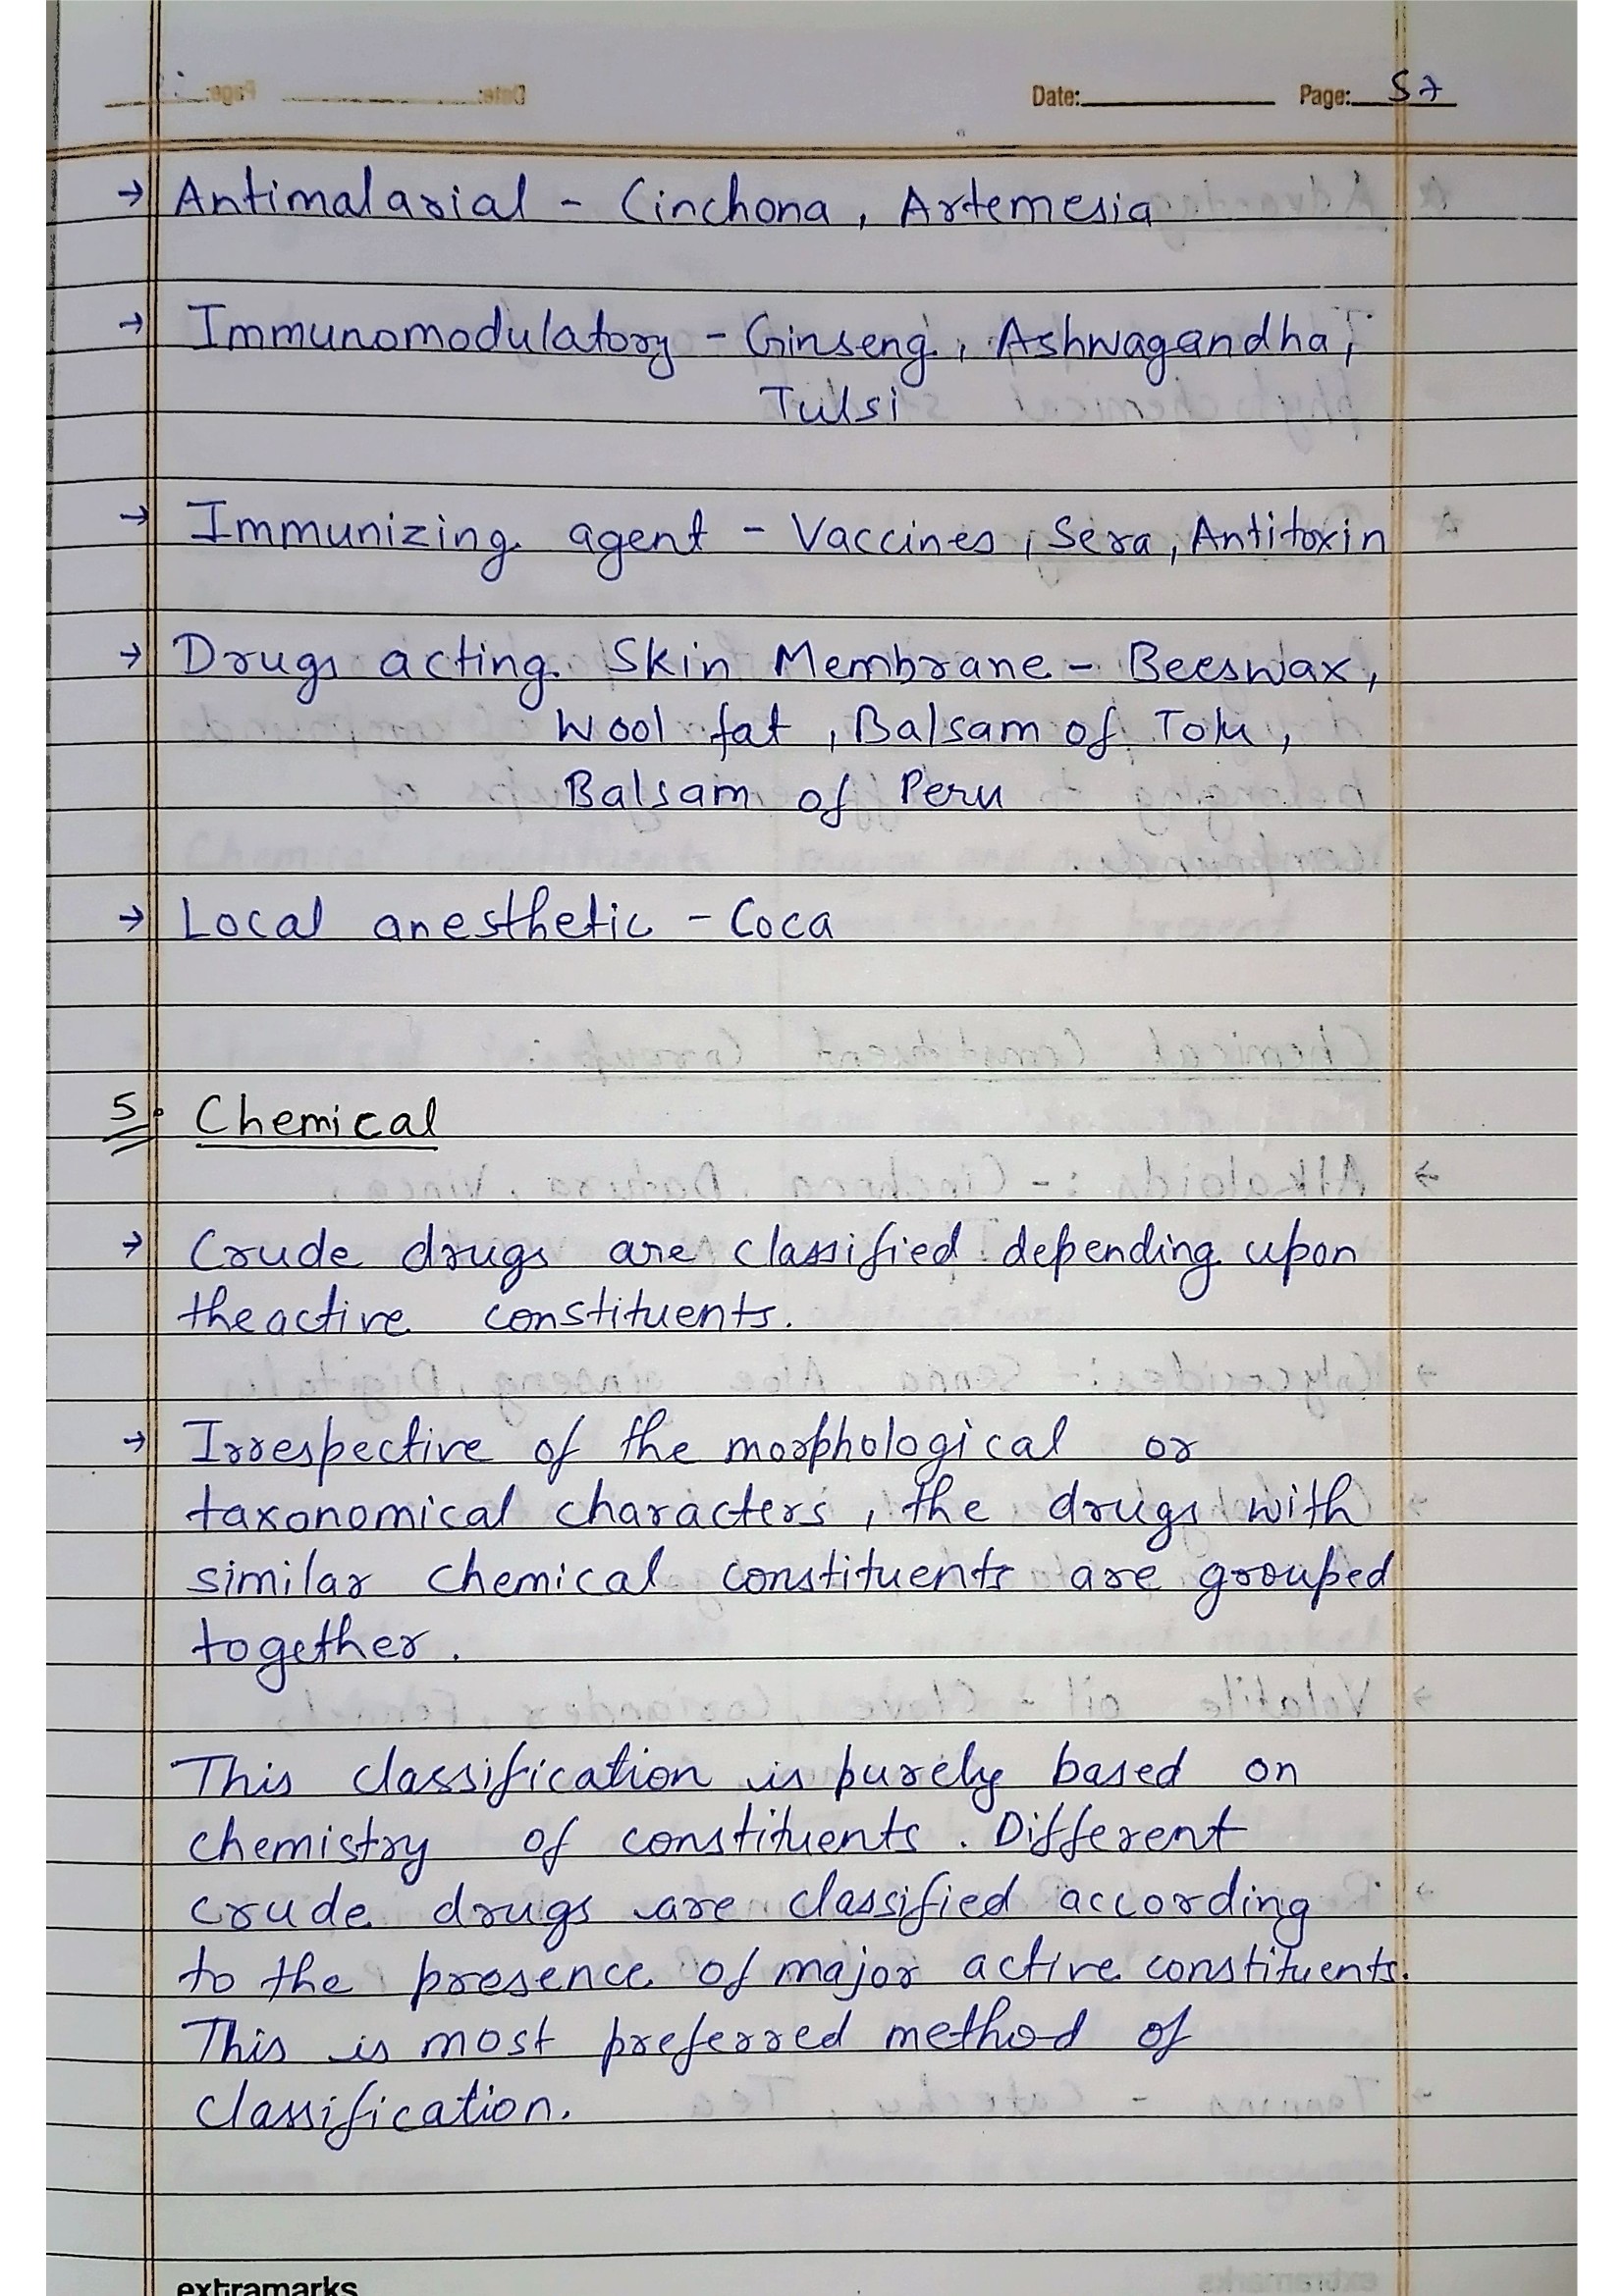 Date: Page: 57
→ Antimalarial - Cinchona, Artemesia
→ Immunomodulatory - Ginseng, Ashwagandha,
Tulsi
→ Immunizing agent - Vaccines, Sera, Antitoxin
→ Drugs acting Skin Membrane - Beeswax,
Wool fat, Balsam of Tolu,
Balsam of Peru
→ Local anesthetic - Coca
5. Chemical
→ Crude drugs are classified depending upon
the active constituents.
→ Irrespective of the morphological or
taxonomical characters, the drugs with
similar chemical constituents are grouped
together.
This classification is purely based on
chemistry of constituents. Different
crude drugs are classified according
to the presence of major active constituents.
This is most preferred method of
classification.
extramarks